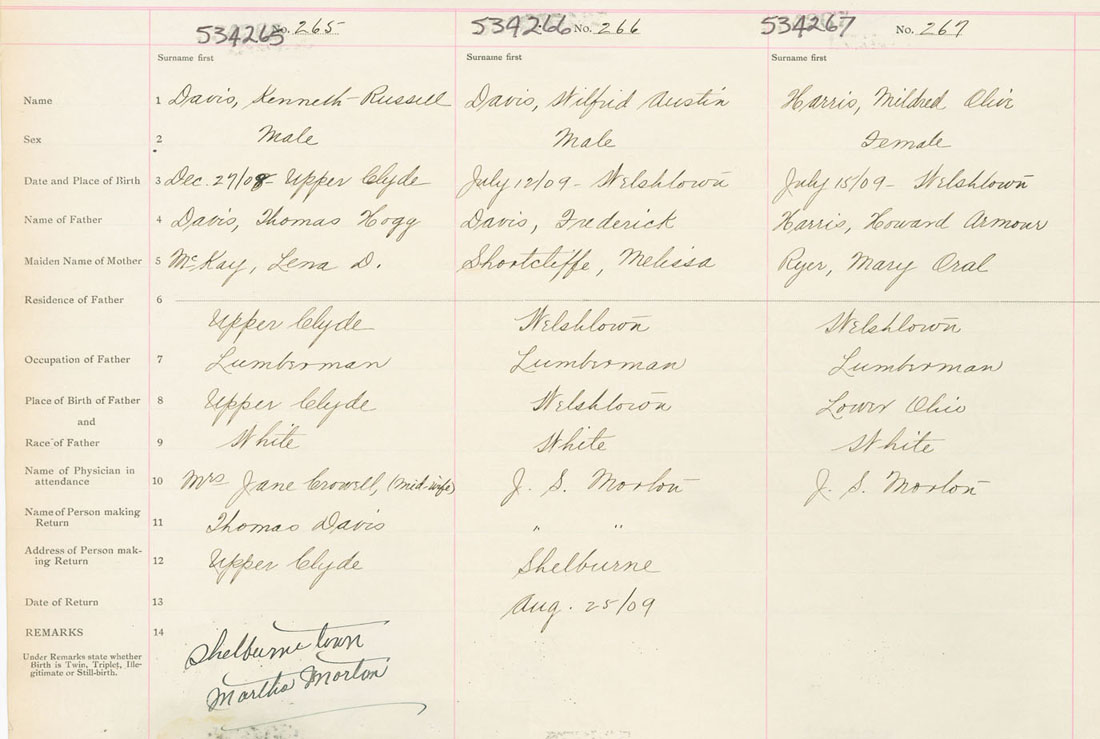 534265 No. 265 534266 No. 266 534267 No. 267
Surname first Surname first Surname first
Name 1 Davis, Kenneth Russell Davis, Wilfrid Austin Harris, Mildred Olive
Sex 2 Male Male Female
Date and Place of Birth 3 Dec. 27/08 - Upper Clyde July 12/09 - Welshtown July 15/09 - Welshtown
Name of Father 4 Davis, Thomas Hogg Davis, Frederick Harris, Howard Armour
Maiden Name of Mother 5 McKay, Lena D. Shortcliffe, Melissa Ryer, Mary Oral
Residence of Father 6
Upper Clyde Welshtown Welshtown
Occupation of Father 7 Lumberman Lumberman Lumberman
Place of Birth of Father 8 Upper Clyde Welshtown Lower Ohio
and
Race of Father 9 White White White
Name of Physician in
attendance 10 Mrs Jane Crowell, (mid-wife) J. S. Morton J. S. Morton
Name of Person making
Return 11 Thomas Davis " "
Address of Person mak-
ing Return 12 Upper Clyde Shelburne
Date of Return 13 Aug. 25/09
REMARKS 14
Under Remarks state whether
Birth is Twin, Triplet, Ille-
gitimate or Still-birth.
Shelburne town
Martha Morton